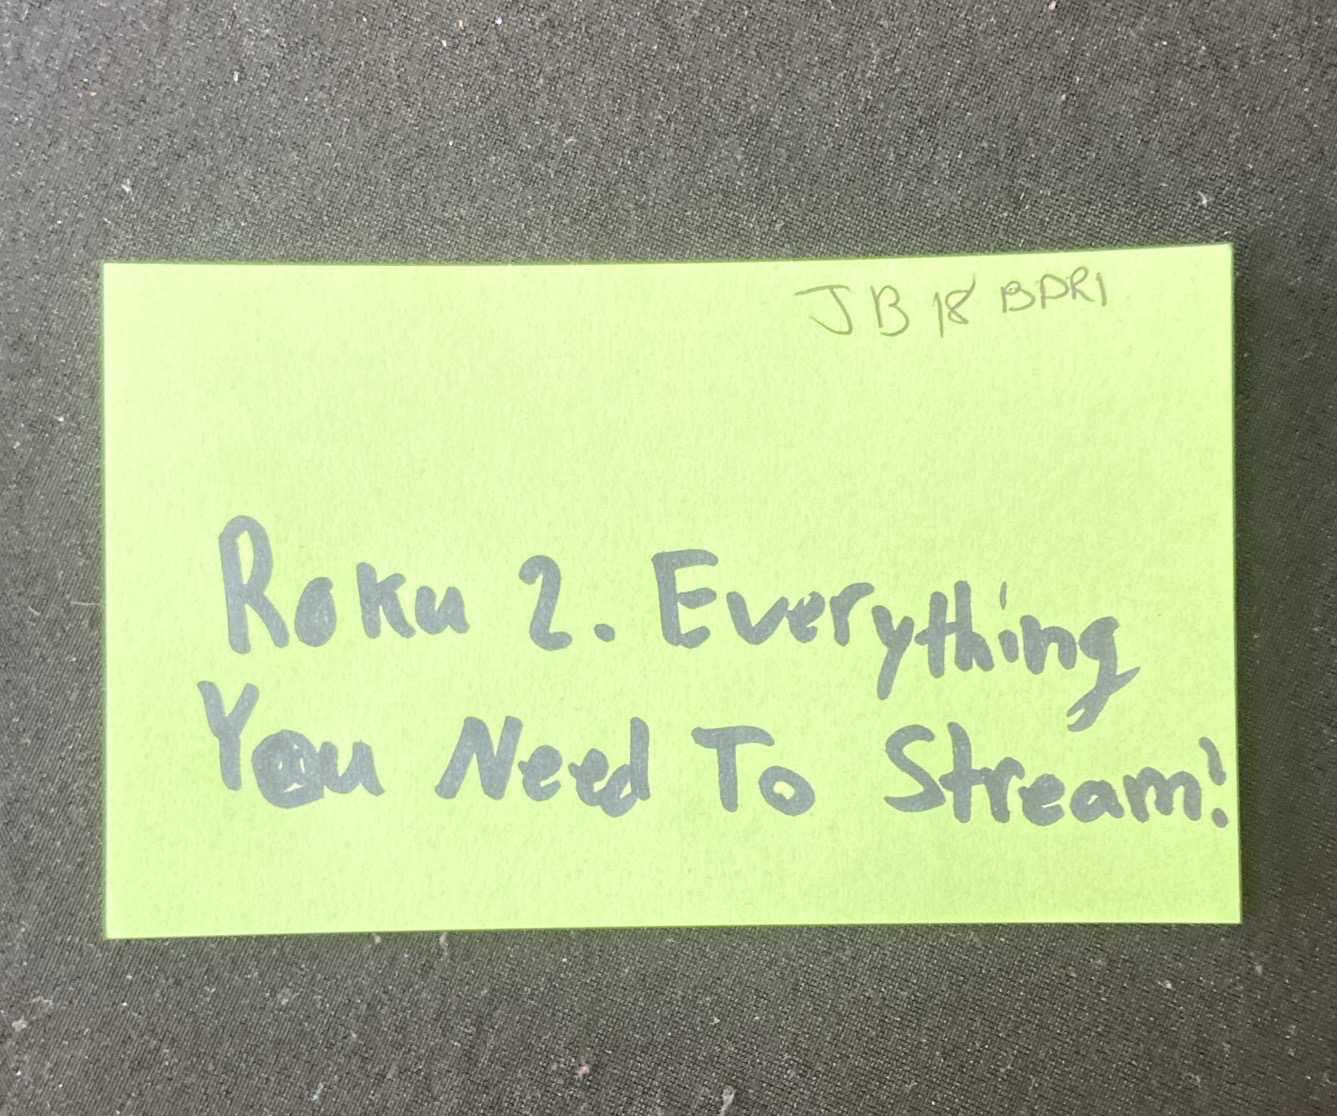 JB 18 BDR1
Roku 2. Everything
You Need To Stream!